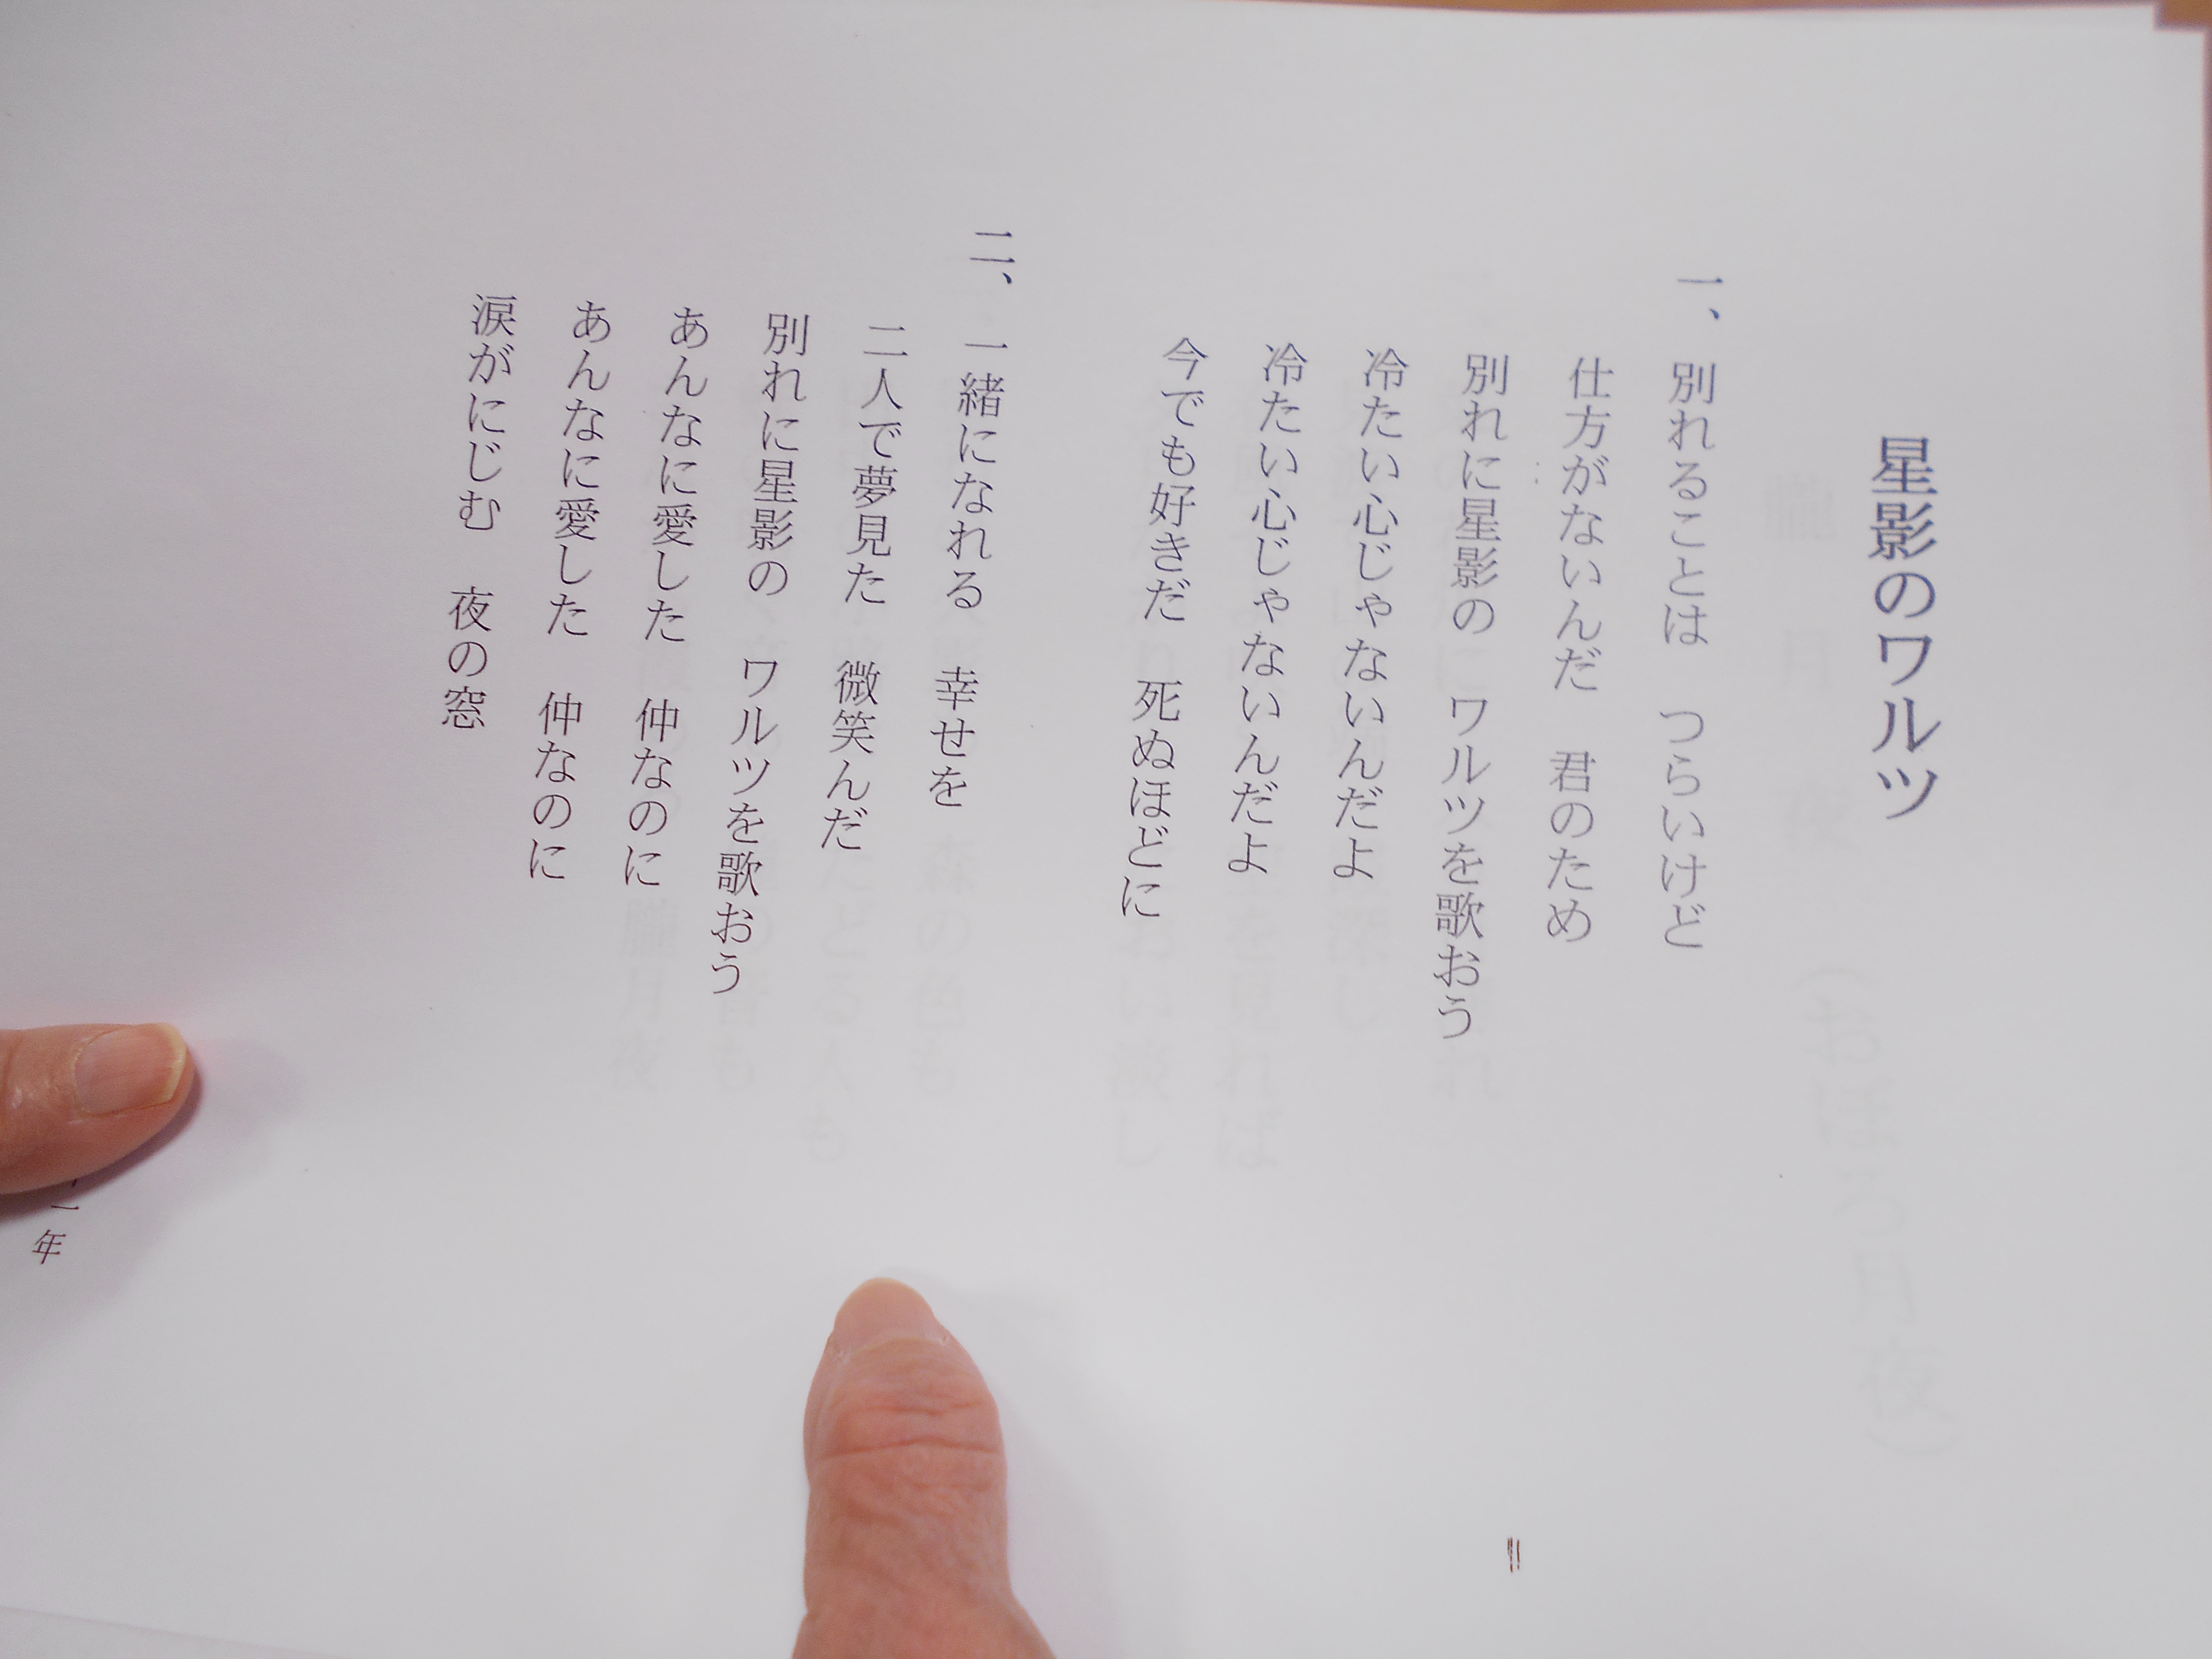 星影のワルツ
一、別れることは　つらいけど
仕方がないんだ　君のため
別れに星影の　ワルツを歌おう
冷たい心じゃないんだよ
冷たい心じゃないんだよ
今でも好きだ　死ぬほどに
二、一緒になれる　幸せを
二人で夢見た　微笑んだ
別れに星影の　ワルツを歌おう
あんなに愛した　仲なのに
あんなに愛した　仲なのに
涙がにじむ　夜の窓
一年